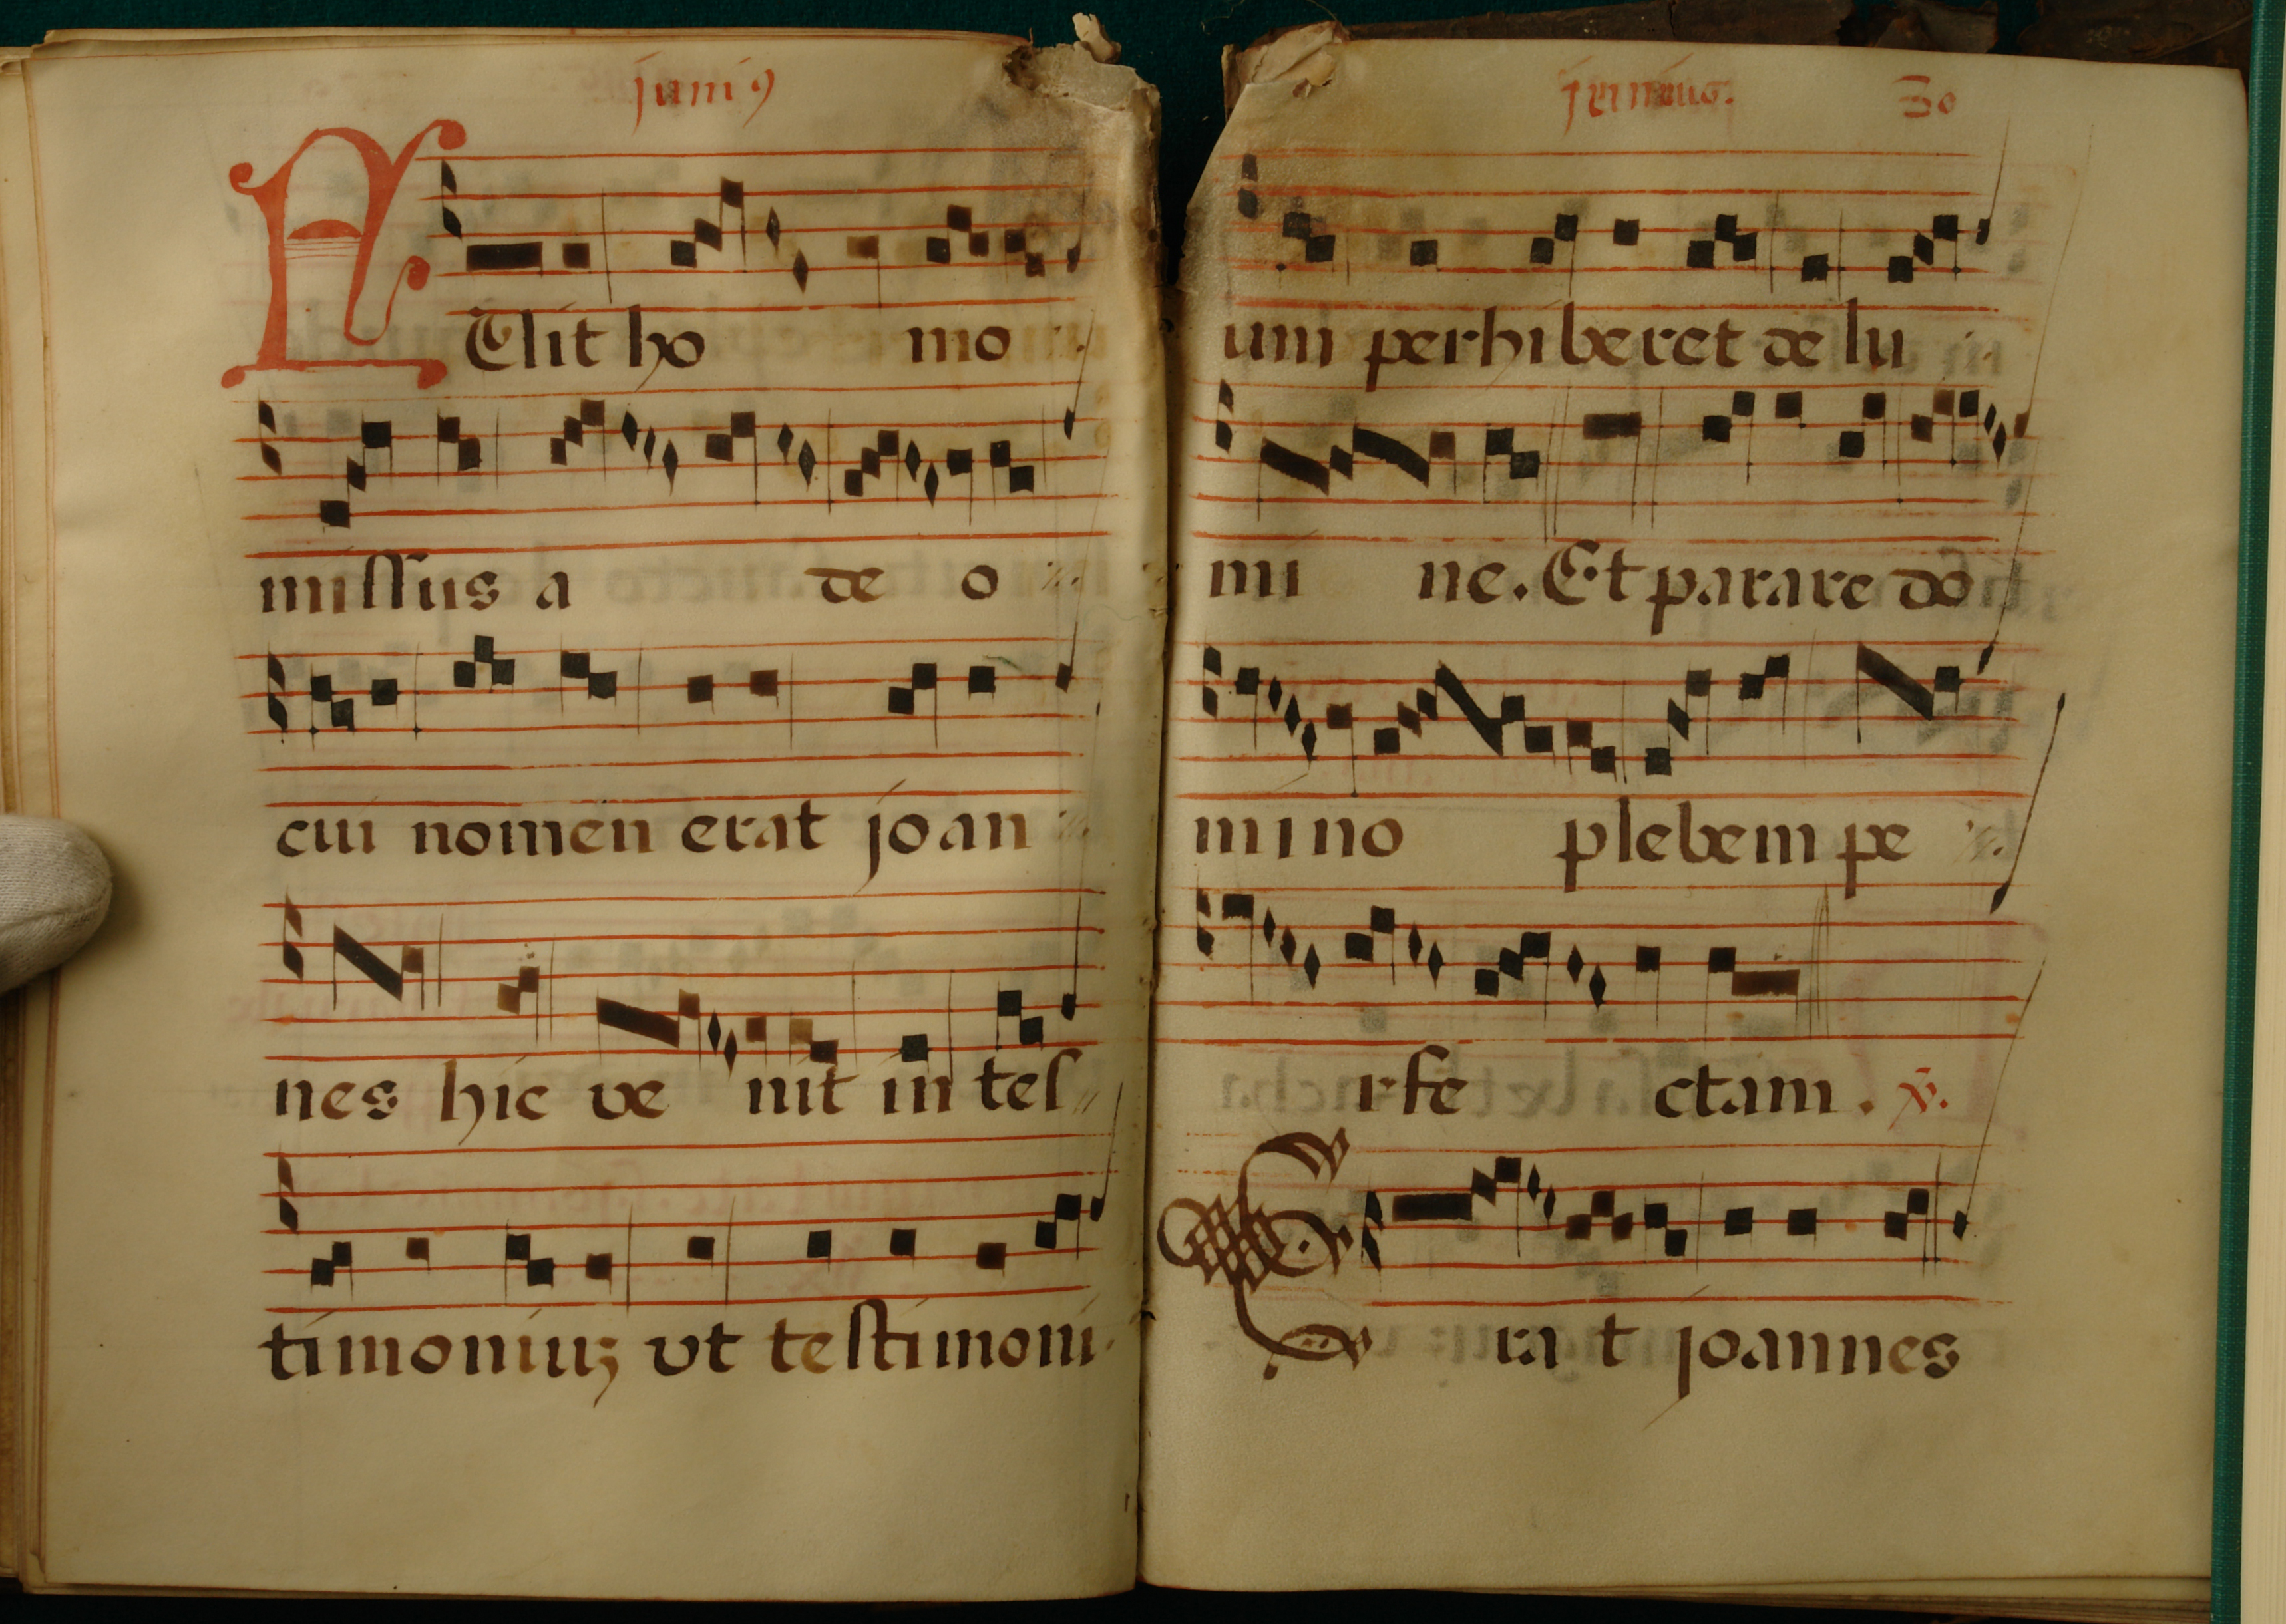 juni9
FUit ho mo
missus a de o
cui nomen erat joan
nes hic ve nit in tes
timoniuz vt testimoni
junius. 30
um perhiberet de lu
mi ne. Et parare do
mino plebem pe
rfe ctam. v.
Era t joannes